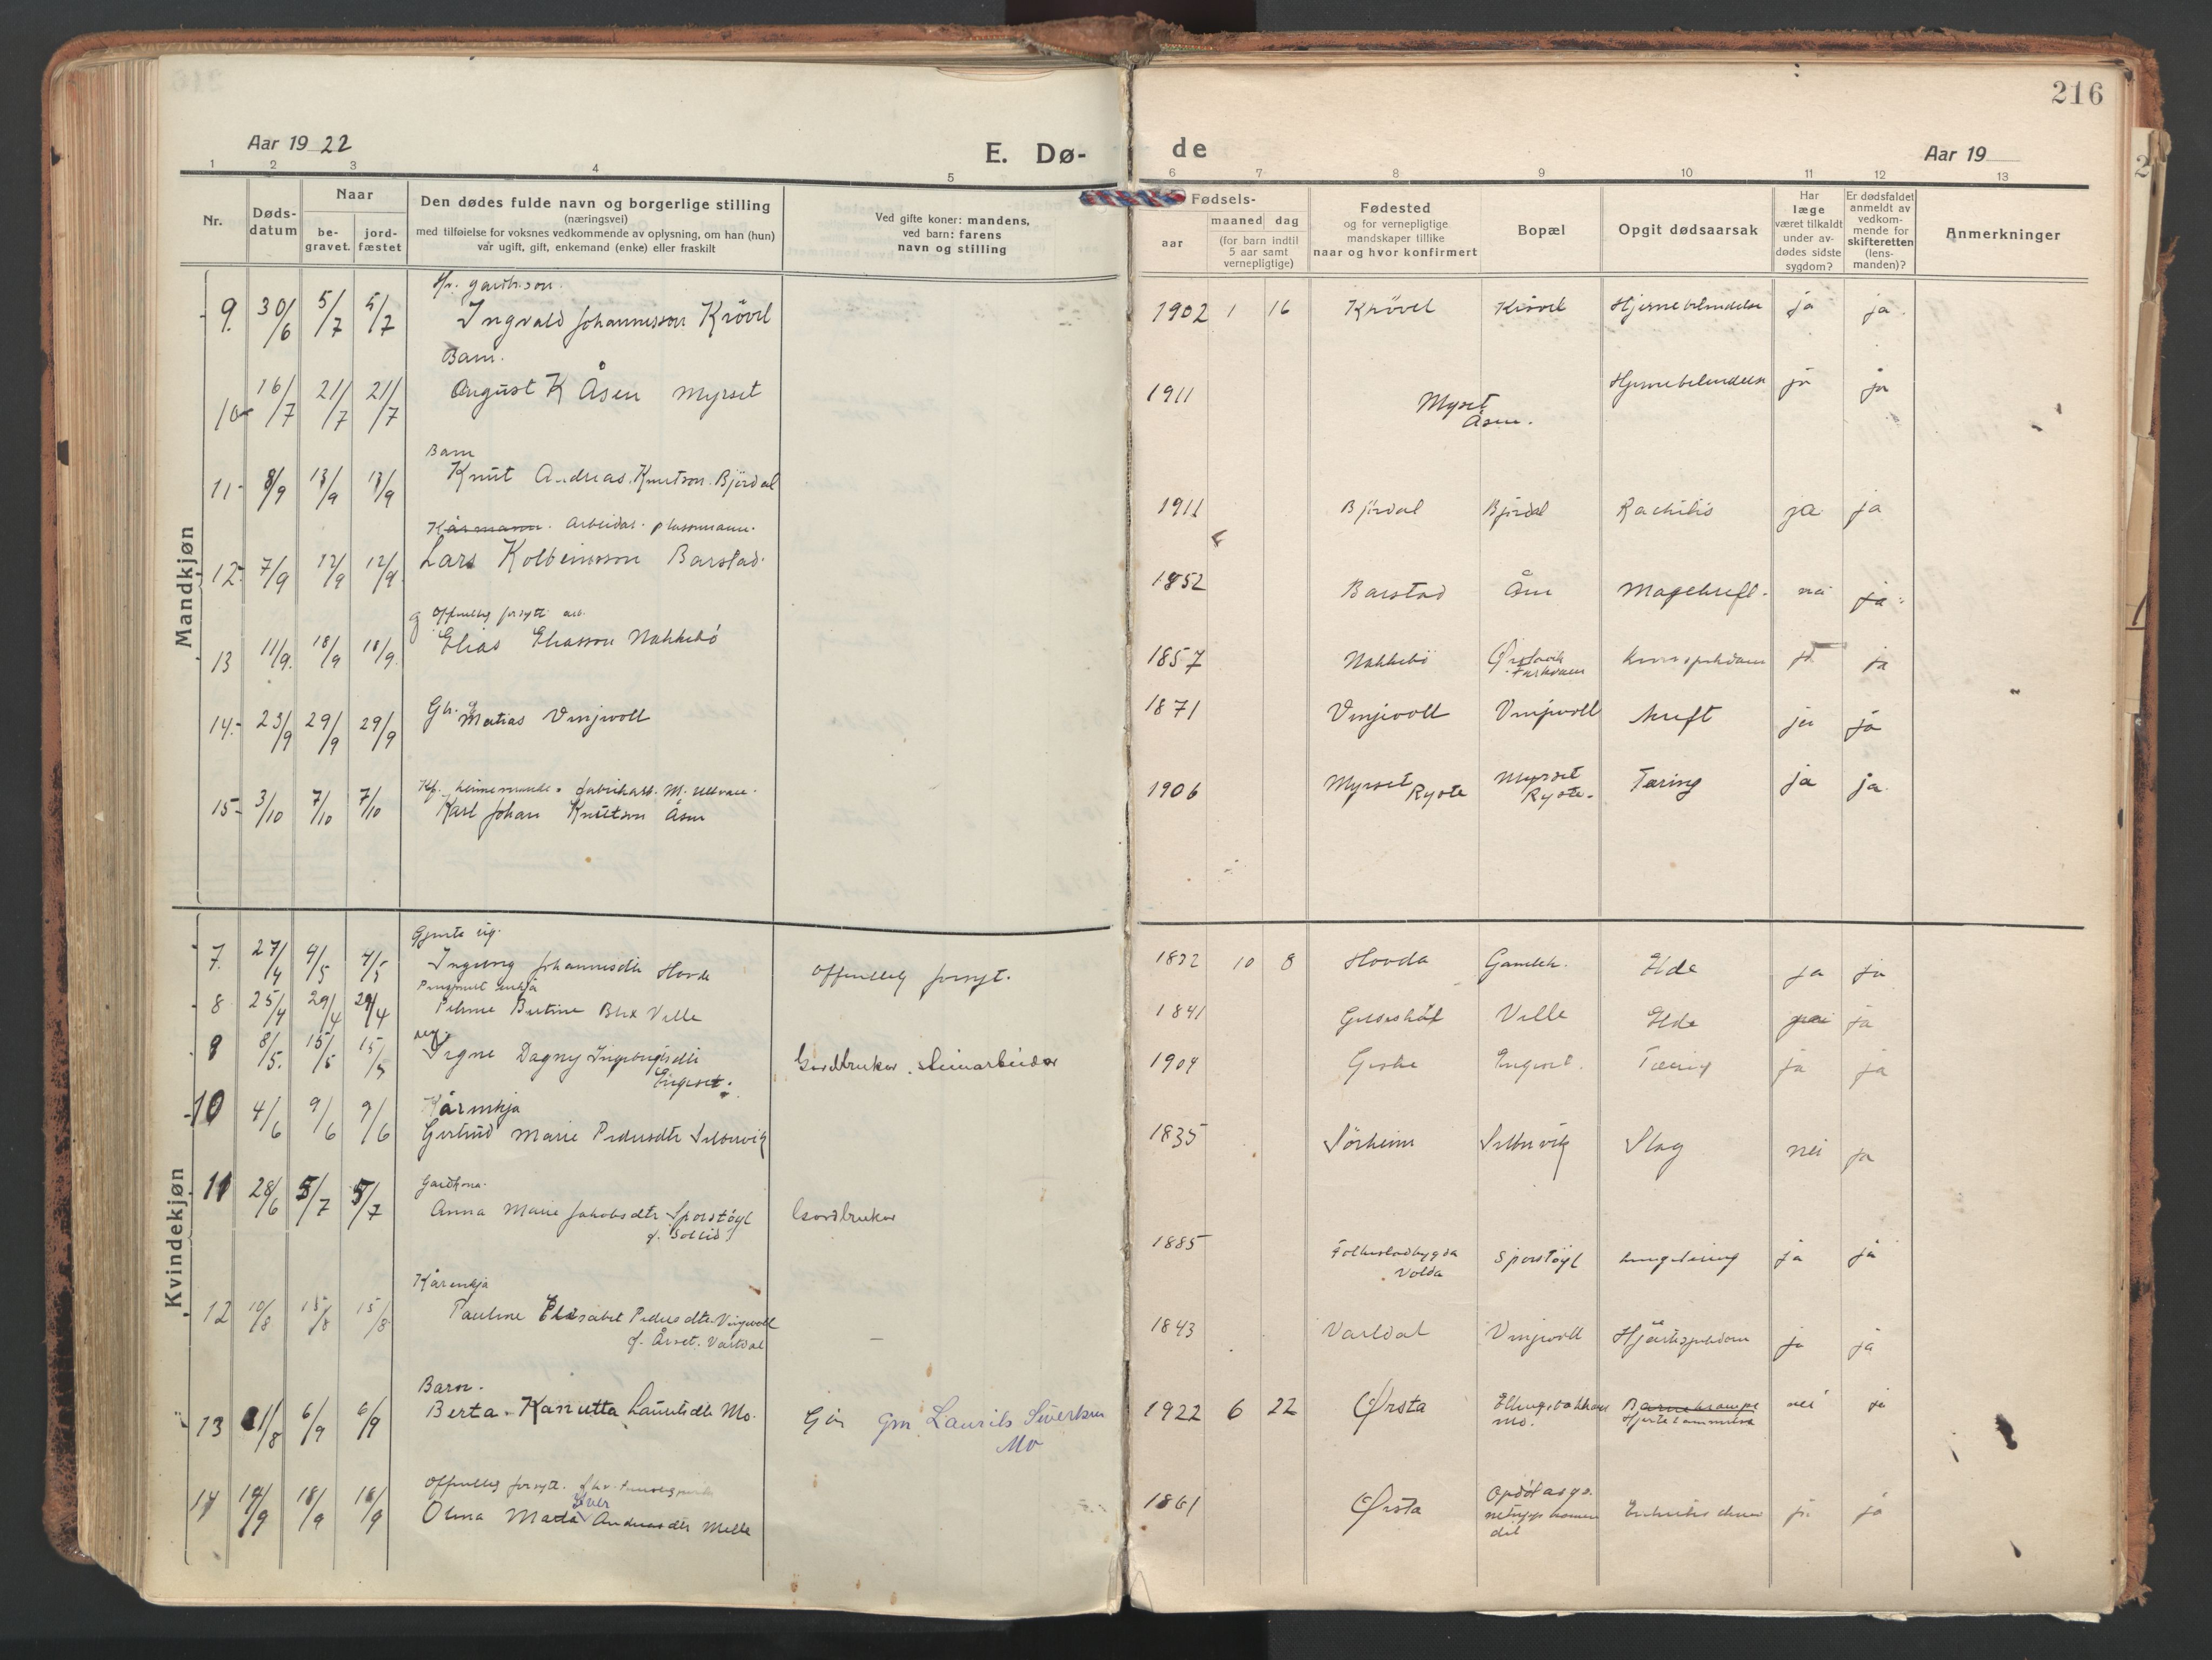 216
Aar 19 22
E. Dø-
de
Aar 19
1 2 3 4 5 6 7 8 9 10 11 12 13
Nr.
Døds-
datum
Naar
be-
gravet.
jord-
fæstet
Den dødes fulde navn og borgerlige stilling
(næringsvei)
med tilføielse for voksnes vedkommende av oplysning, om han (hun)
var ugift, gift, enkemand (enke) eller fraskilt
Ved gifte koner: mandens,
ved barn: farens
navn og stilling
Fødsels-
aar
maaned dag
(for barn indtil
5 aar samt
vernepligtige)
Fødested
og for vernepligtige
mandskaper tillike
naar og hvor konfirmert
Bopæl
Opgit dødsaarsak
Har
læge
været tilkaldt
under av-
dødes sidste
sygdom?
Er dødsfaldet
anmeldt av
vedkom-
mende for
skifteretten
(lens-
manden)?
Anmerkninger
Mandkjøn
gardbr.son.
9. 30/6 5/7 5/7 Ingvald Johannesson Krövel 1902 1 16 Krövel Krövel Hjernebetendelse ja ja.
Barn.
10 16/7 21/7 21/7 August K Åsen Myrset 1911 Myrset Åsen. Hjernebetendelse ja ja
Barn
11- 8/9 13/9 13/9 Knut Andreas Knutson Björdal 1911 Björdal Björdal Rachitis ja ja
Kårmann. Arbeidar. plassmann.
12- 7/9 12/9 12/9 Lars Kolbeinsson Barstad. 1852 Barstad Åm Magekreft. nei ja
Offentleg forsytt arb.
13 11/9. 18/9 18/9. Elias Eliasson Nakkebö 1857 Nakkebö Ørstavik ja
14- 23/9 29/9 29/9 Gbr. g Matias Vinjevoll 1871 Vinjevoll Vinjevoll kreft ja ja
fabrikarb.
15- 3/10 7/10 7/10 Karl Johan Knutson Åsen 1906 Myrset Ryste Myrset Ryste. Tæring ja ja.
Kvindekjøn
Gjente ug.
7. 27/4 4/5 4/5 Ingeborg Johannesdtr Hovde offentleg forsyt. 1832 10 8 Hovda Gamleh. Elde ja ja
8 25/4 29/4 29/4 Bertine Blix Velle 1841 Velle Elde ja
ug.
9 8/5. 15/5 15/5 Signe Dagny Ingebrigtsdtr Engeset. Gardbrukar. steinarbeidar 1904 Giske Engeset. Tæring ja ja
Kårenkja
10 4/6 9/6 9/6 Gertrud Marie Pedersdtr Sætervik 1835 Sörheim Sætervik Slag nei ja
Gardkona.
11 28/6 5/7 5/7 Anna Marie Jakobsdtr Sporstøyl Gardbrukar 1885 Folkestadbygda Volda Sporstøyl lungetæring ja ja
f. Sollid
Kårenkja
12 10/8 15/8 15/8 Pauline Elisabet Pedersdtr Vinjevoll 1843 Vartdal Vinjevoll Hjärtesjukdom ja ja
f. Årset. Vartdal
Barn.
13 31/8 6/9 6/9 Berta. Kanutta Lauritsdtr Mo. Gm Laurits Sivertsen Mo 1922 6 22 Ørsta Mo. Barnekrampe nei ja
Offentleg forsytt.
14 14/9 18/9 18/9 Olina Andreasdtr Melle 1861 Ørsta ja ja